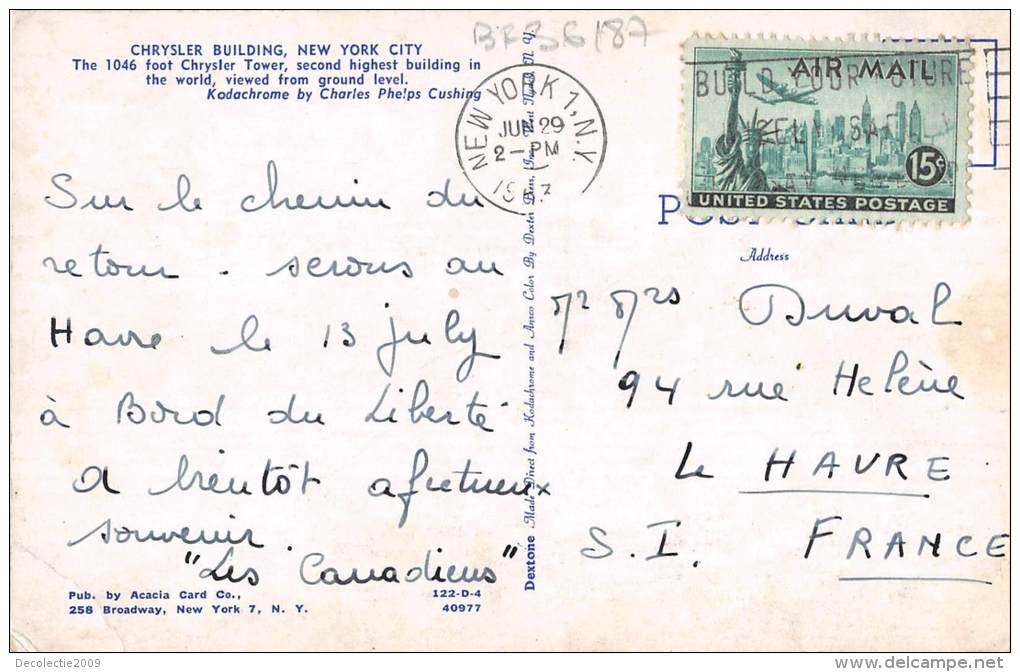 BRB S6/87
CHRYSLER BUILDING, NEW YORK CITY
The 1046 foot Chrysler Tower, second highest building in
the world, viewed from ground level.
Kodachrome by Charles Phe!ps Cushing
NEW YORK 1, N.Y.
JUN 29
2 - PM
AIR MAIL
BUILD YOUR
15¢
UNITED STATES POSTAGE
POST CARD
Address
Sur le chemin du
retour - serons au
Havre le 13 july
à Bord du Liberté
a bientôt afectueux
souvenir.
"Les Canadiens"
Pub. by Acacia Card Co.,
258 Broadway, New York 7, N. Y.
122-D-4
40977
Dextone Made Direct from Kodachrome and Ansco Color By Dexter Press, Inc., N. Y.
Duval
94 rue Helène
Le HAVRE
S. I. FRANCE
Decolectie2009
http://www.delcampe.net